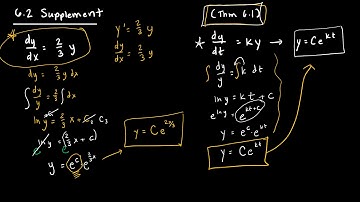 6.2 Supplement
* dy/dx = 2/3 y
y' = 2/3 y
dy/dx = 2/3 y
dy = 2/3 y dx
∫ dy/y = 2/3 ∫ dx
ln y = 2/3 x + C
e^(ln y) = e^(2/3 x + C)
y = e^C e^(2/3 x)
y = C e^(2x/3)
(Thm 6.1)
* dy/dt = Ky → y = C e^(kt)
∫ dy/y = ∫ k dt
ln y = kt + C
e^(ln y) = e^(kt+C)
y = e^C · e^(kt)
y = C e^(kt)